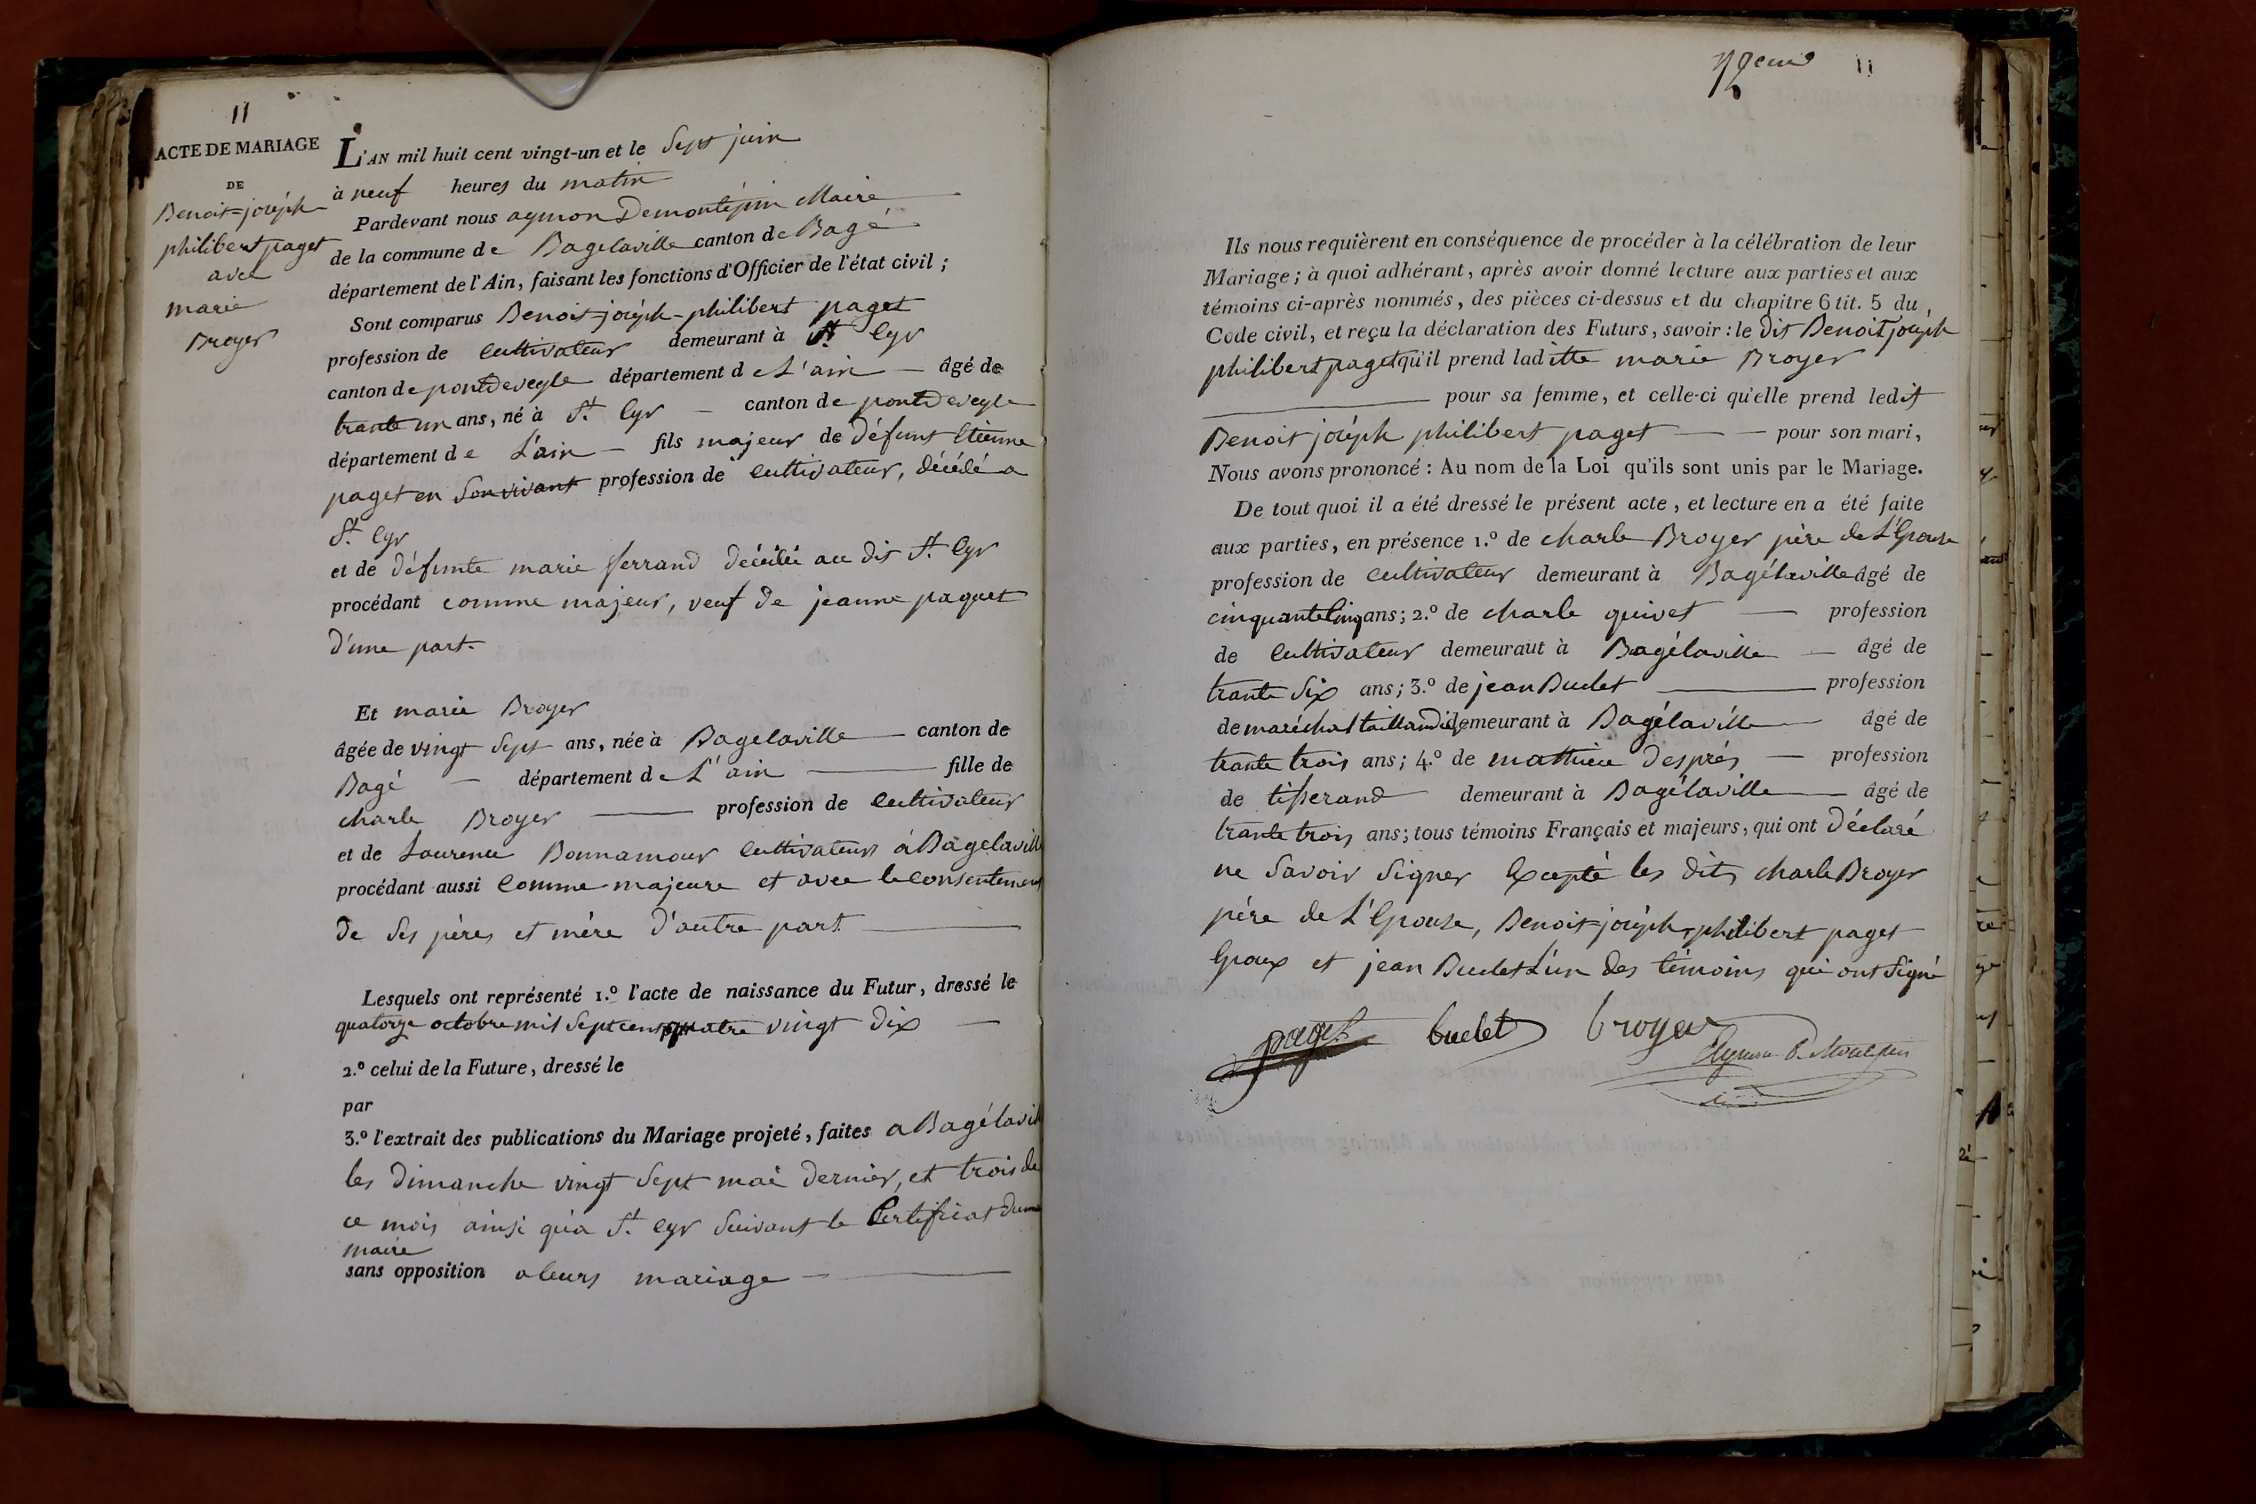 11
ACTE DE MARIAGE
DE
Benoit=joséph
philibert paget
avec
marie
Broyer
L'AN mil huit cent vingt-un et le Sept juin
à neuf heures du matin
Pardevant nous aymon Demontépin Maire
de la commune de Bagelaville canton de Bagé
département de l'Ain, faisant les fonctions d'Officier de l'état civil ;
Sont comparus Benoit=joséph-philibert paget
profession de Cultivateur demeurant à St. Cyr
canton de pontdeveyle département de L'ain — âgé de
trante un ans, né à St. Cyr — canton de pontdeveyle
département de L'ain — fils majeur de défunt Etienne
paget en Son vivant profession de Cultivateur, décédé a
St. Cyr
et de défunte marie ferrand décédée au dit St. Cyr
procédant comme majeur, veuf de jeanne paquet
d'une part.
Et marie Broyer
âgée de vingt Sept ans, née à Bagelaville — canton de
Bagé — département de L'ain — fille de
charle Broyer — profession de Cultivateur
et de Laurence Bonnamour Cultivateurs á Bagelaville
procédant aussi Comme majeure et avec le Consentement
de Ses péres et mére d'autre part —
Lesquels ont représenté 1.º l'acte de naissance du Futur, dressé le
quatorze octobre mil Sept cens quatre vingt dix —
2.º celui de la Future, dressé le
par
3.º l'extrait des publications du Mariage projeté, faites a Bagélaville
les Dimanche vingt Sept mai dernier, et trois de
ce mois ainsi qu'a St. Cyr Suivant le Certificat du
maire
sans opposition a leurs mariage —
11
Ils nous requièrent en conséquence de procéder à la célébration de leur
Mariage ; à quoi adhérant, après avoir donné lecture aux parties et aux
témoins ci-après nommés, des pièces ci-dessus et du chapitre 6 tit. 5 du
Code civil, et reçu la déclaration des Futurs, savoir : le dit Benoit joseph
philibert paget qu'il prend laditte marie Broyer
— pour sa femme, et celle-ci qu'elle prend ledit
Benoit joséph philibert paget — pour son mari,
Nous avons prononcé : Au nom de la Loi qu'ils sont unis par le Mariage.
De tout quoi il a été dressé le présent acte, et lecture en a été faite
aux parties, en présence 1.º de charle Broyer pére de L'Epouse
profession de Cultivateur demeurant à Bagélaville âgé de
cinquante Cinq ans ; 2.º de charle quivet — profession
de Cultivateur demeurant à Bagélaville — âgé de
trante Six ans ; 3.º de jean Buclet — profession
de maréchal taillandier demeurant à Bagélaville — âgé de
trante trois ans ; 4.º de mathieu Després — profession
de tisserand demeurant à Bagélaville — âgé de
trante trois ans ; tous témoins Français et majeurs, qui ont Déclaré
ne Savoir Signer Excepté les dits charle Broyer
pére de L'Epouse, Benoit=joséph-philibert paget
Epoux et jean Buclet L'un des témoins qui ont Signé
paget buclet broyer
Aymon De Montepin